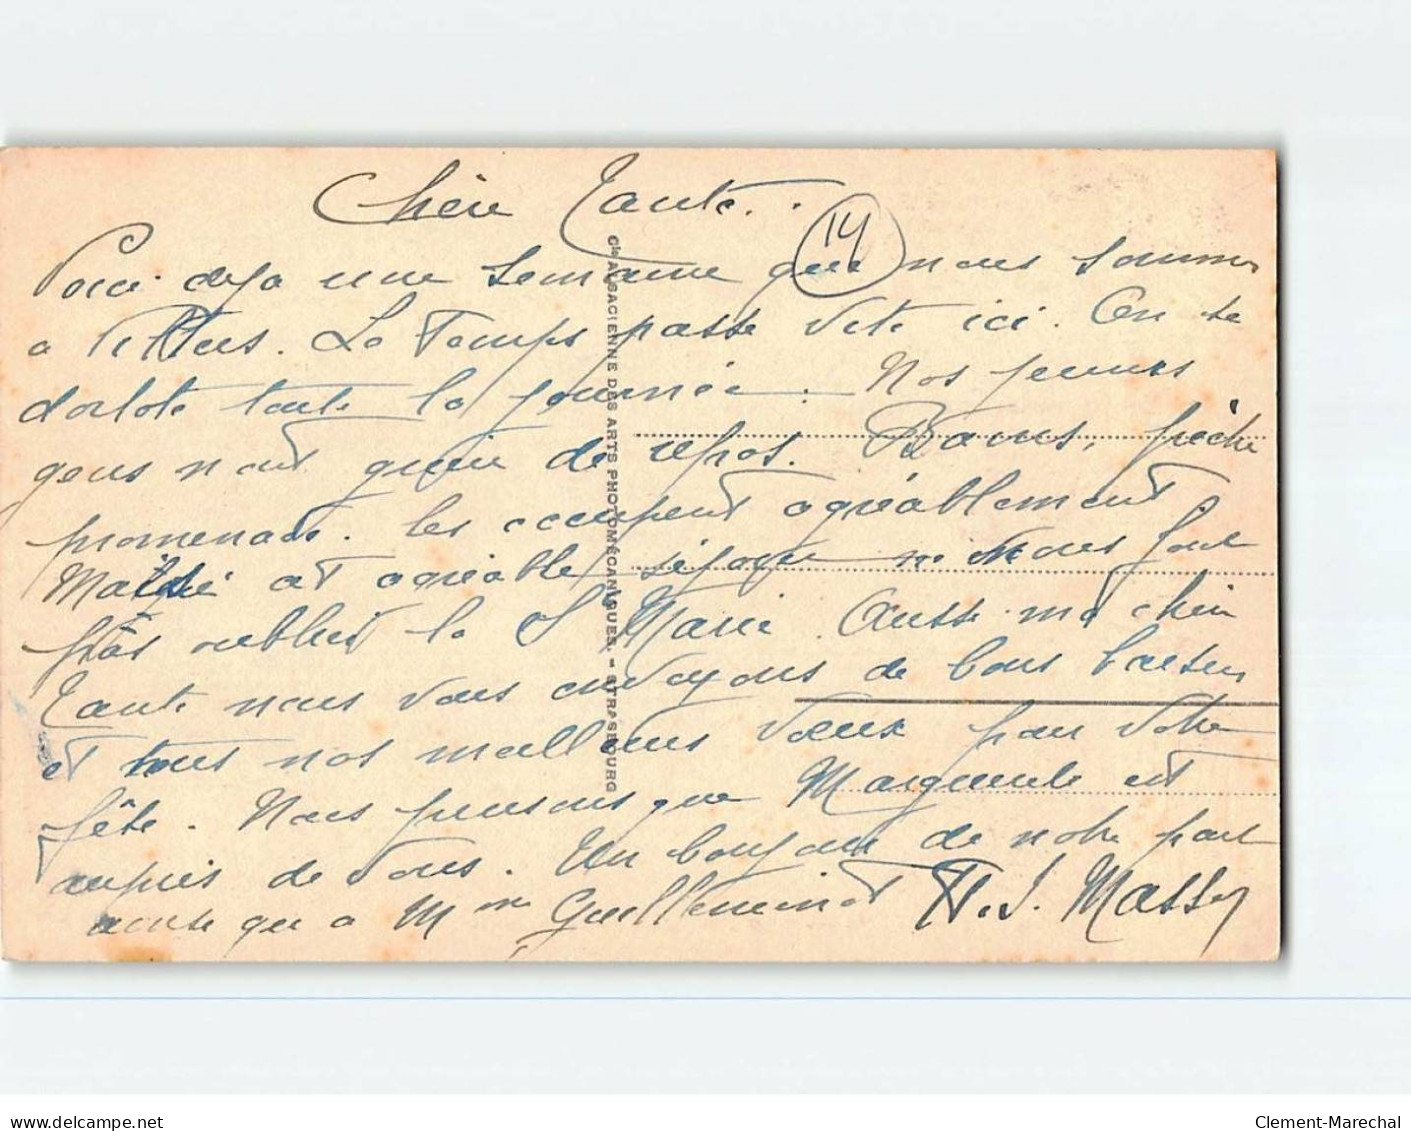 Chère Tante.
14
Voici deja une semaine que nous sommes
a Villers. Le Temps passe vite ici. On se
dorlote toute la journée. Nos jeunes
gens n'ont guère de repos. Bains, pêche
promenade. les occupent agréablement
Malgré cet agréable séjour ne nous font
pas oublier la Ste Marie. Aussi ma chère
Tante nous vous envoyons de bons baisers
et tous nos meilleurs vœux pour votre
fête. Nous pensons que Marguerite est
auprès de vous. Un bonjour de notre part
ainsi qu'a Mme Guilleminot H. J. Masson
Cie ALSACIENNE DES ARTS PHOTOMÉCANIQUES. - STRASBOURG
delcampe.net
Clement-Marechal